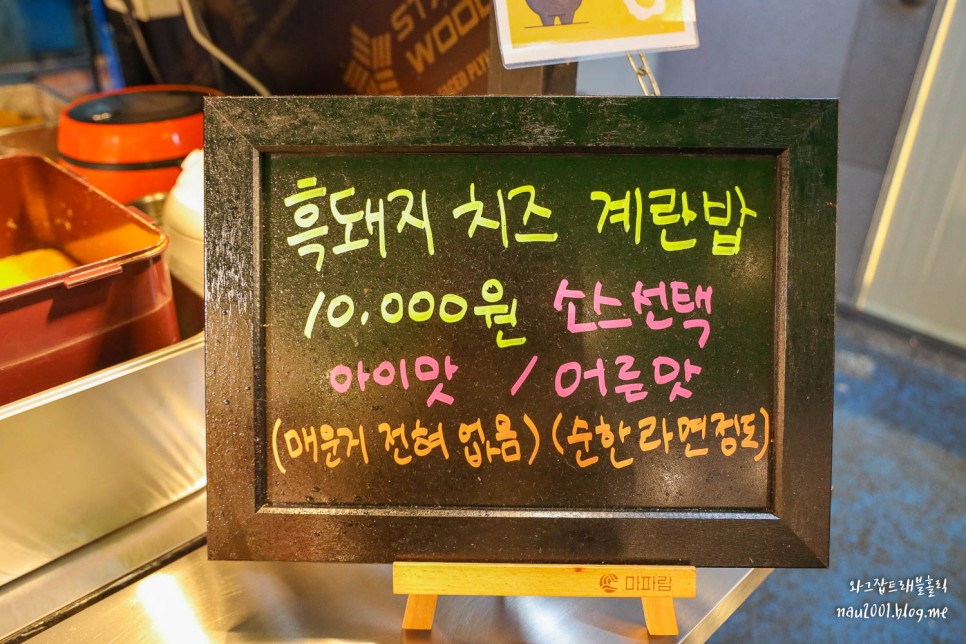 흑돼지 치즈 계란밥
10.000원 소스선택
아이맛 / 어른맛
(매운거 전혀 없음) (순한라면정도)
마파람
와그잡트래블홀릭
nau2001.blog.me